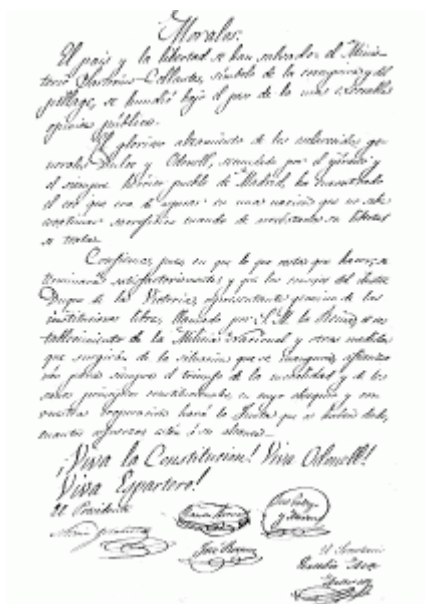 Morales.
El pais y la libertad se han salvado: el Minis-
terio Sartorius-Collantes, símbolo de la corrupcion y del
pillage, se hundió bajo el peso de la mas
opinion pública.
El glorioso alzamiento de los esclarecidos ge-
nerales Dulce y Odonell, secundado por el ejército y
el siempre heróico pueblo de Madrid, ha demostrado
el eco que era de esperar en una nacion que no sabe
sacrificios cuando de su libertad
se trata.
Confiemos, pues en que lo que resta que hacer, se
terminará satisfactoriamente, y que los consejos del ilustre
Duque de la Victoria, representante genuino de las
instituciones libres, llamado por S. M. la Reina, el res-
tablecimiento de la Milicia Nacional y otras medidas
que surgirán de la situacion que se inaugura, afianza-
rán para siempre el triunfo de la moralidad y de los
sanos principios constitucionales, en cuyo obsequio y con
vuestra cooperacion hará la Junta que os
cuantos esfuerzos esten á su alcance.
¡Viva la Constitucion! Viva Odonell!
Viva Espartero!
El Presidente
José
El Secretario